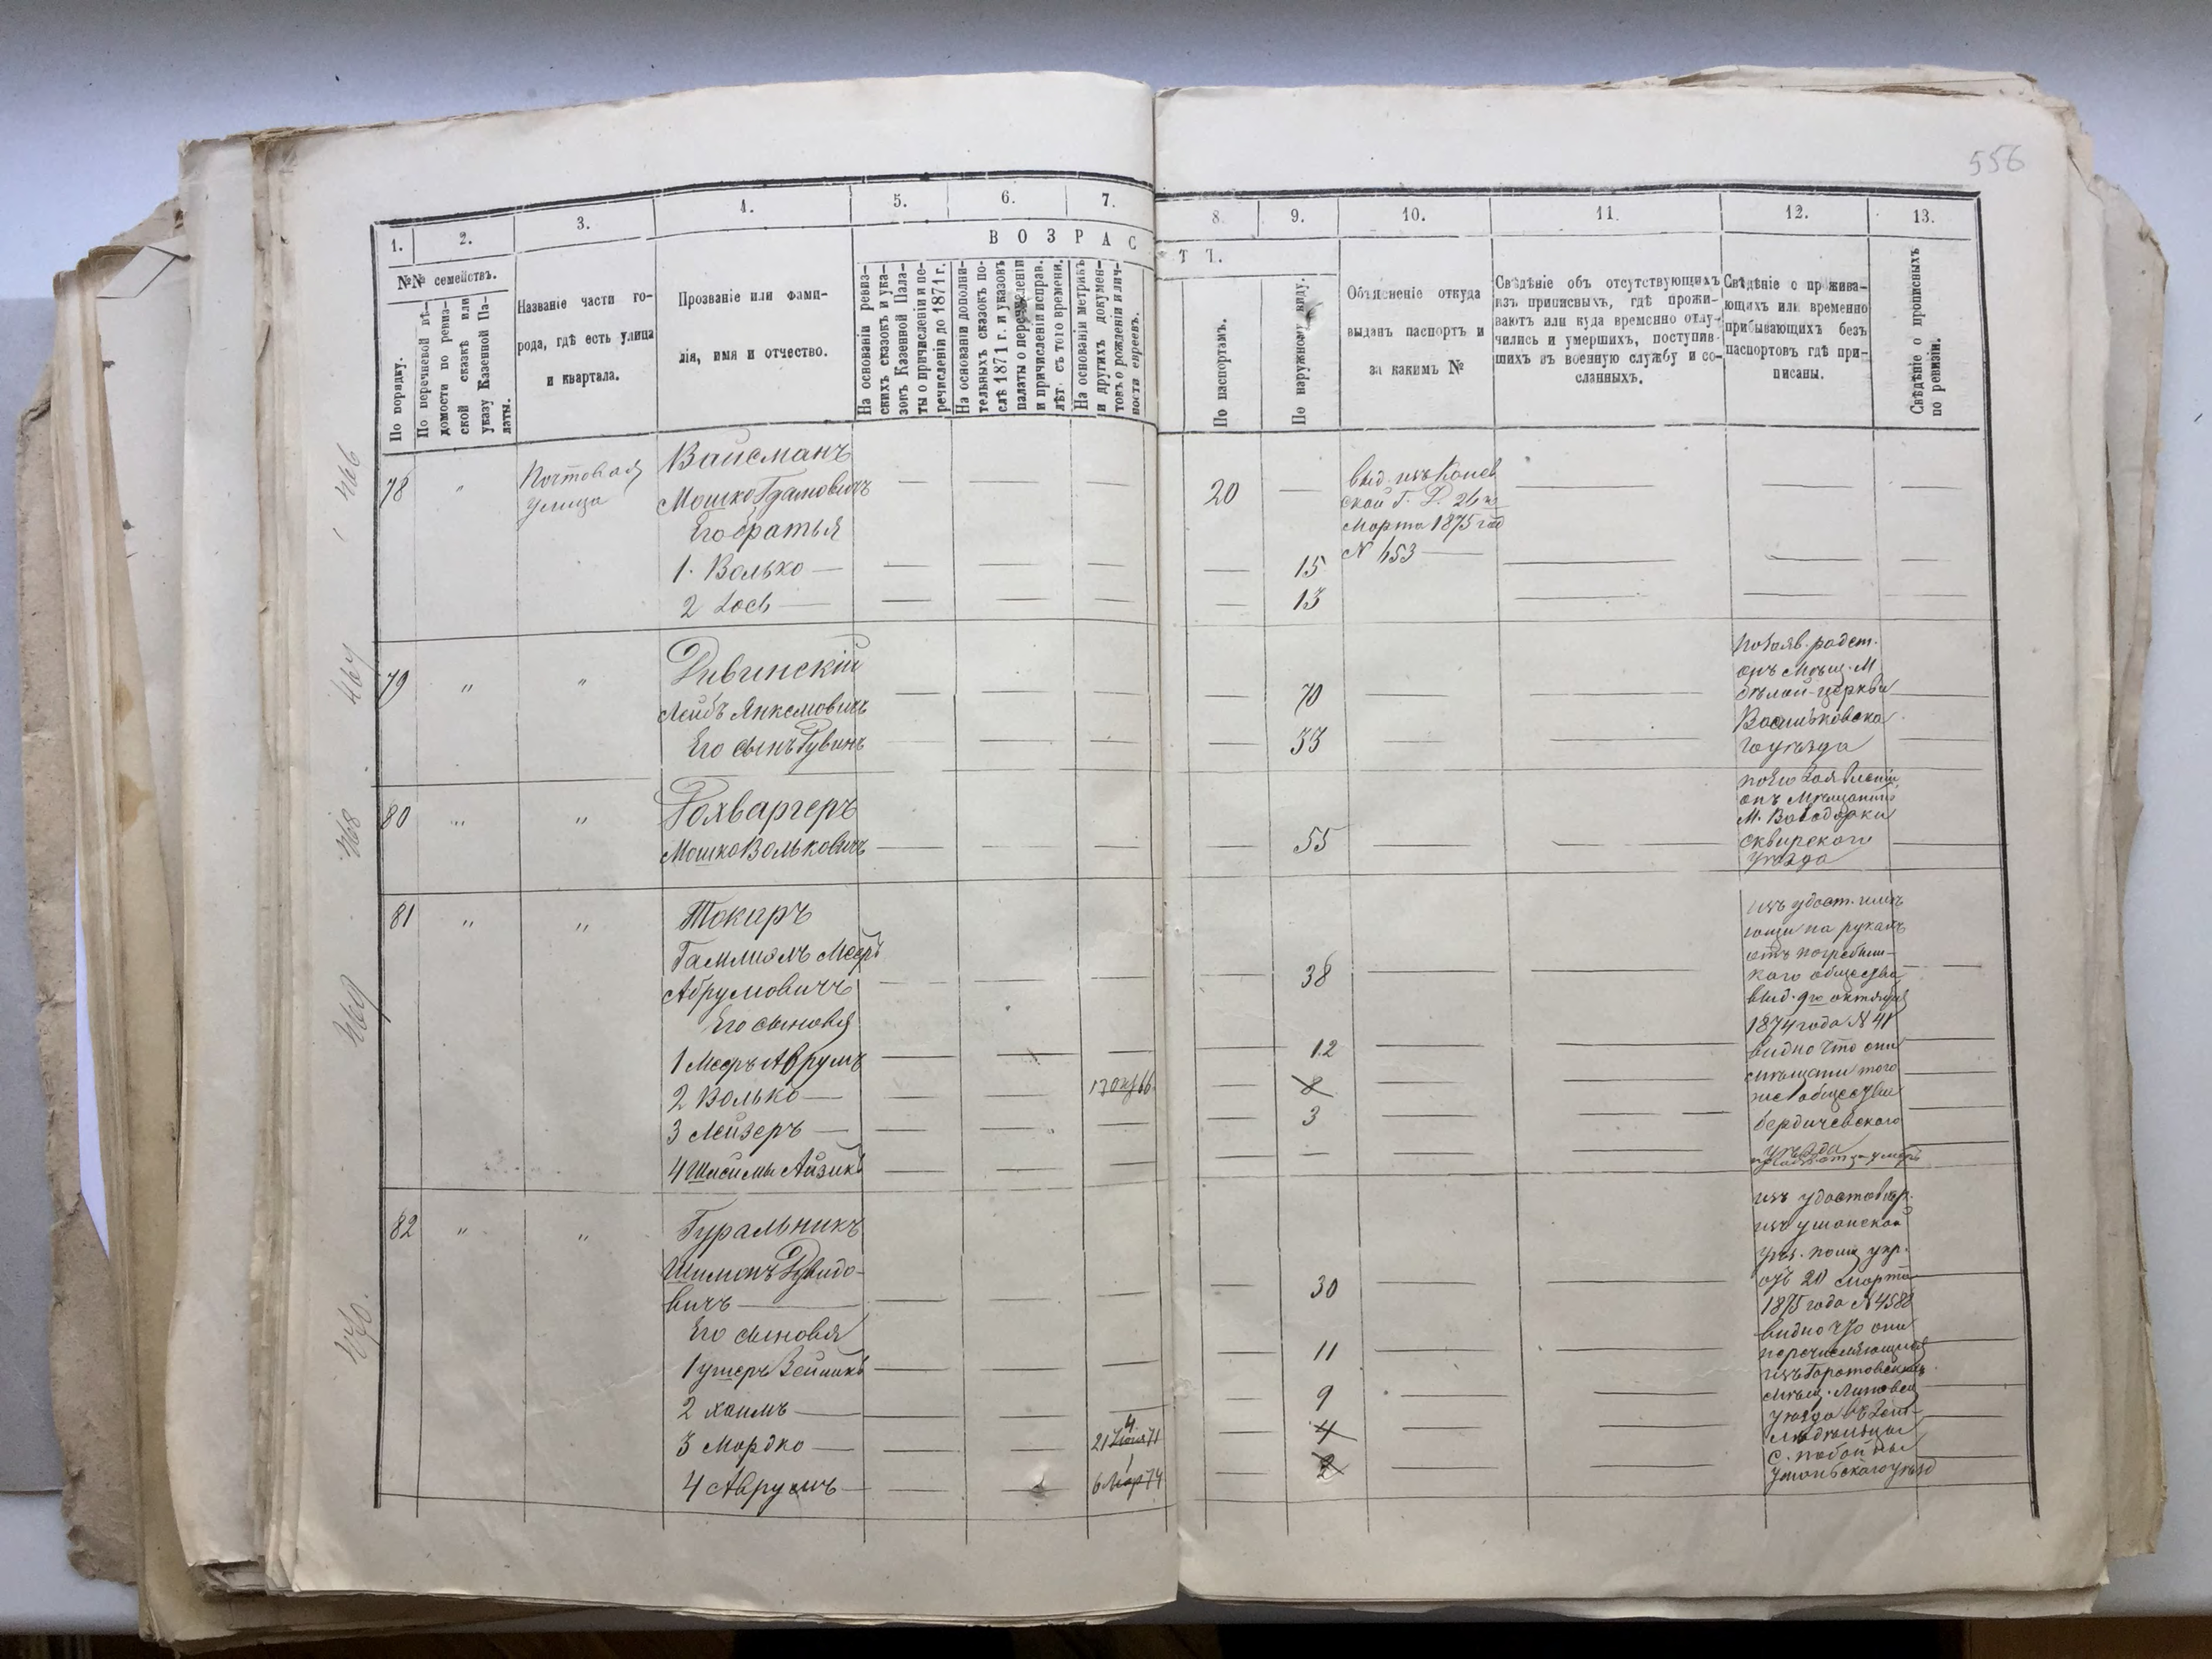 556
1.
2.
3.
4.
5.
6.
7.
8.
9.
10.
11.
12.
13.
ВОЗРАС
ТЪ.
№№ семействъ.
По порядку.
По перечневой вѣ-
домости по ревиз-
ской сказкѣ или
указу Казенной Па-
латы.
Названіе части го-
рода, гдѣ есть улица
и квартала.
Прозваніе или фами-
лія, имя и отчество.
На основаніи ревиз-
скихъ сказокъ и ука-
зовъ Казенной Пала-
ты о причисленіи и пе-
речисленіи до 1871 г.
На основаніи дополни-
тельныхъ сказокъ по-
слѣ 1871 г. и указовъ
палаты о перечисленіи
и причисленіи исправ.
лѣт. съ того времени.
На основаніи метрикъ
и другихъ докумен-
товъ о рожденіи и лич-
ности евреевъ.
По паспортамъ.
По наружному виду.
Объясненіе откуда
выданъ паспортъ и
за какимъ №
Свѣдѣніе объ отсутствующихъ
изъ приписныхъ, гдѣ прожи-
ваютъ или куда временно отлу-
чились и умершихъ, поступив-
шихъ въ военную службу и со-
сланныхъ.
Свѣдѣніе о прожива-
ющихъ или временно
прибывающихъ безъ
паспортовъ гдѣ при-
писаны.
Свѣдѣніе о прописныхъ
по ревизіи.
466
78 " Почтовая
улица
Вайсманъ
Мошко
Его братья
20
выд. изъ Канев
ской Г. Д. 26го
Марта 1875 год
N 653
1. Волько — 15
2 Іось — 13
467
79 " "
Дивинскій
Лейбъ Янкелевичъ 70
Его сынъ Рувинъ 33
Мѣщ. М.
бѣлой-церкви
Васильковска
го уѣзда
468
80 " "
Рохваргеръ
Мошко Вольковичъ 55
по его заявленію
онъ Мѣщанинъ
М. Володарки
Сквирскаго
уѣзда
469
81 " "
Токарь
Абрумовичъ 38
Его сыновья
1 Мееръ Аврумъ 12
2 Волько — 8
3 Лейзеръ — 3
4 Айзикъ
изъ удост. имѣ
ющ на рукахъ
отъ погребищ-
каго общества
выд. 9го октября
1874 года N 41
видно что они
мѣщани того
же общества
бердичевскаго
уѣзда
470.
82 " "
Гуральникъ
Шимонъ Дувидо-
вичъ — 30
Его сыновья
1 11
2 Хаимъ — 9
3 Мордко — 4
21 71 4
4 Аврумъ — 6 Мар 74 1
2
изъ удостовѣр.
изъ уманскай
уѣз. полиц. упр.
отъ 20 Марта
1875 года N 4588
видно что они
перечисляющіеся
мѣщ. Липовец
уѣзда въ зем-
ледѣльцы
с.
уманьскаго уѣзд